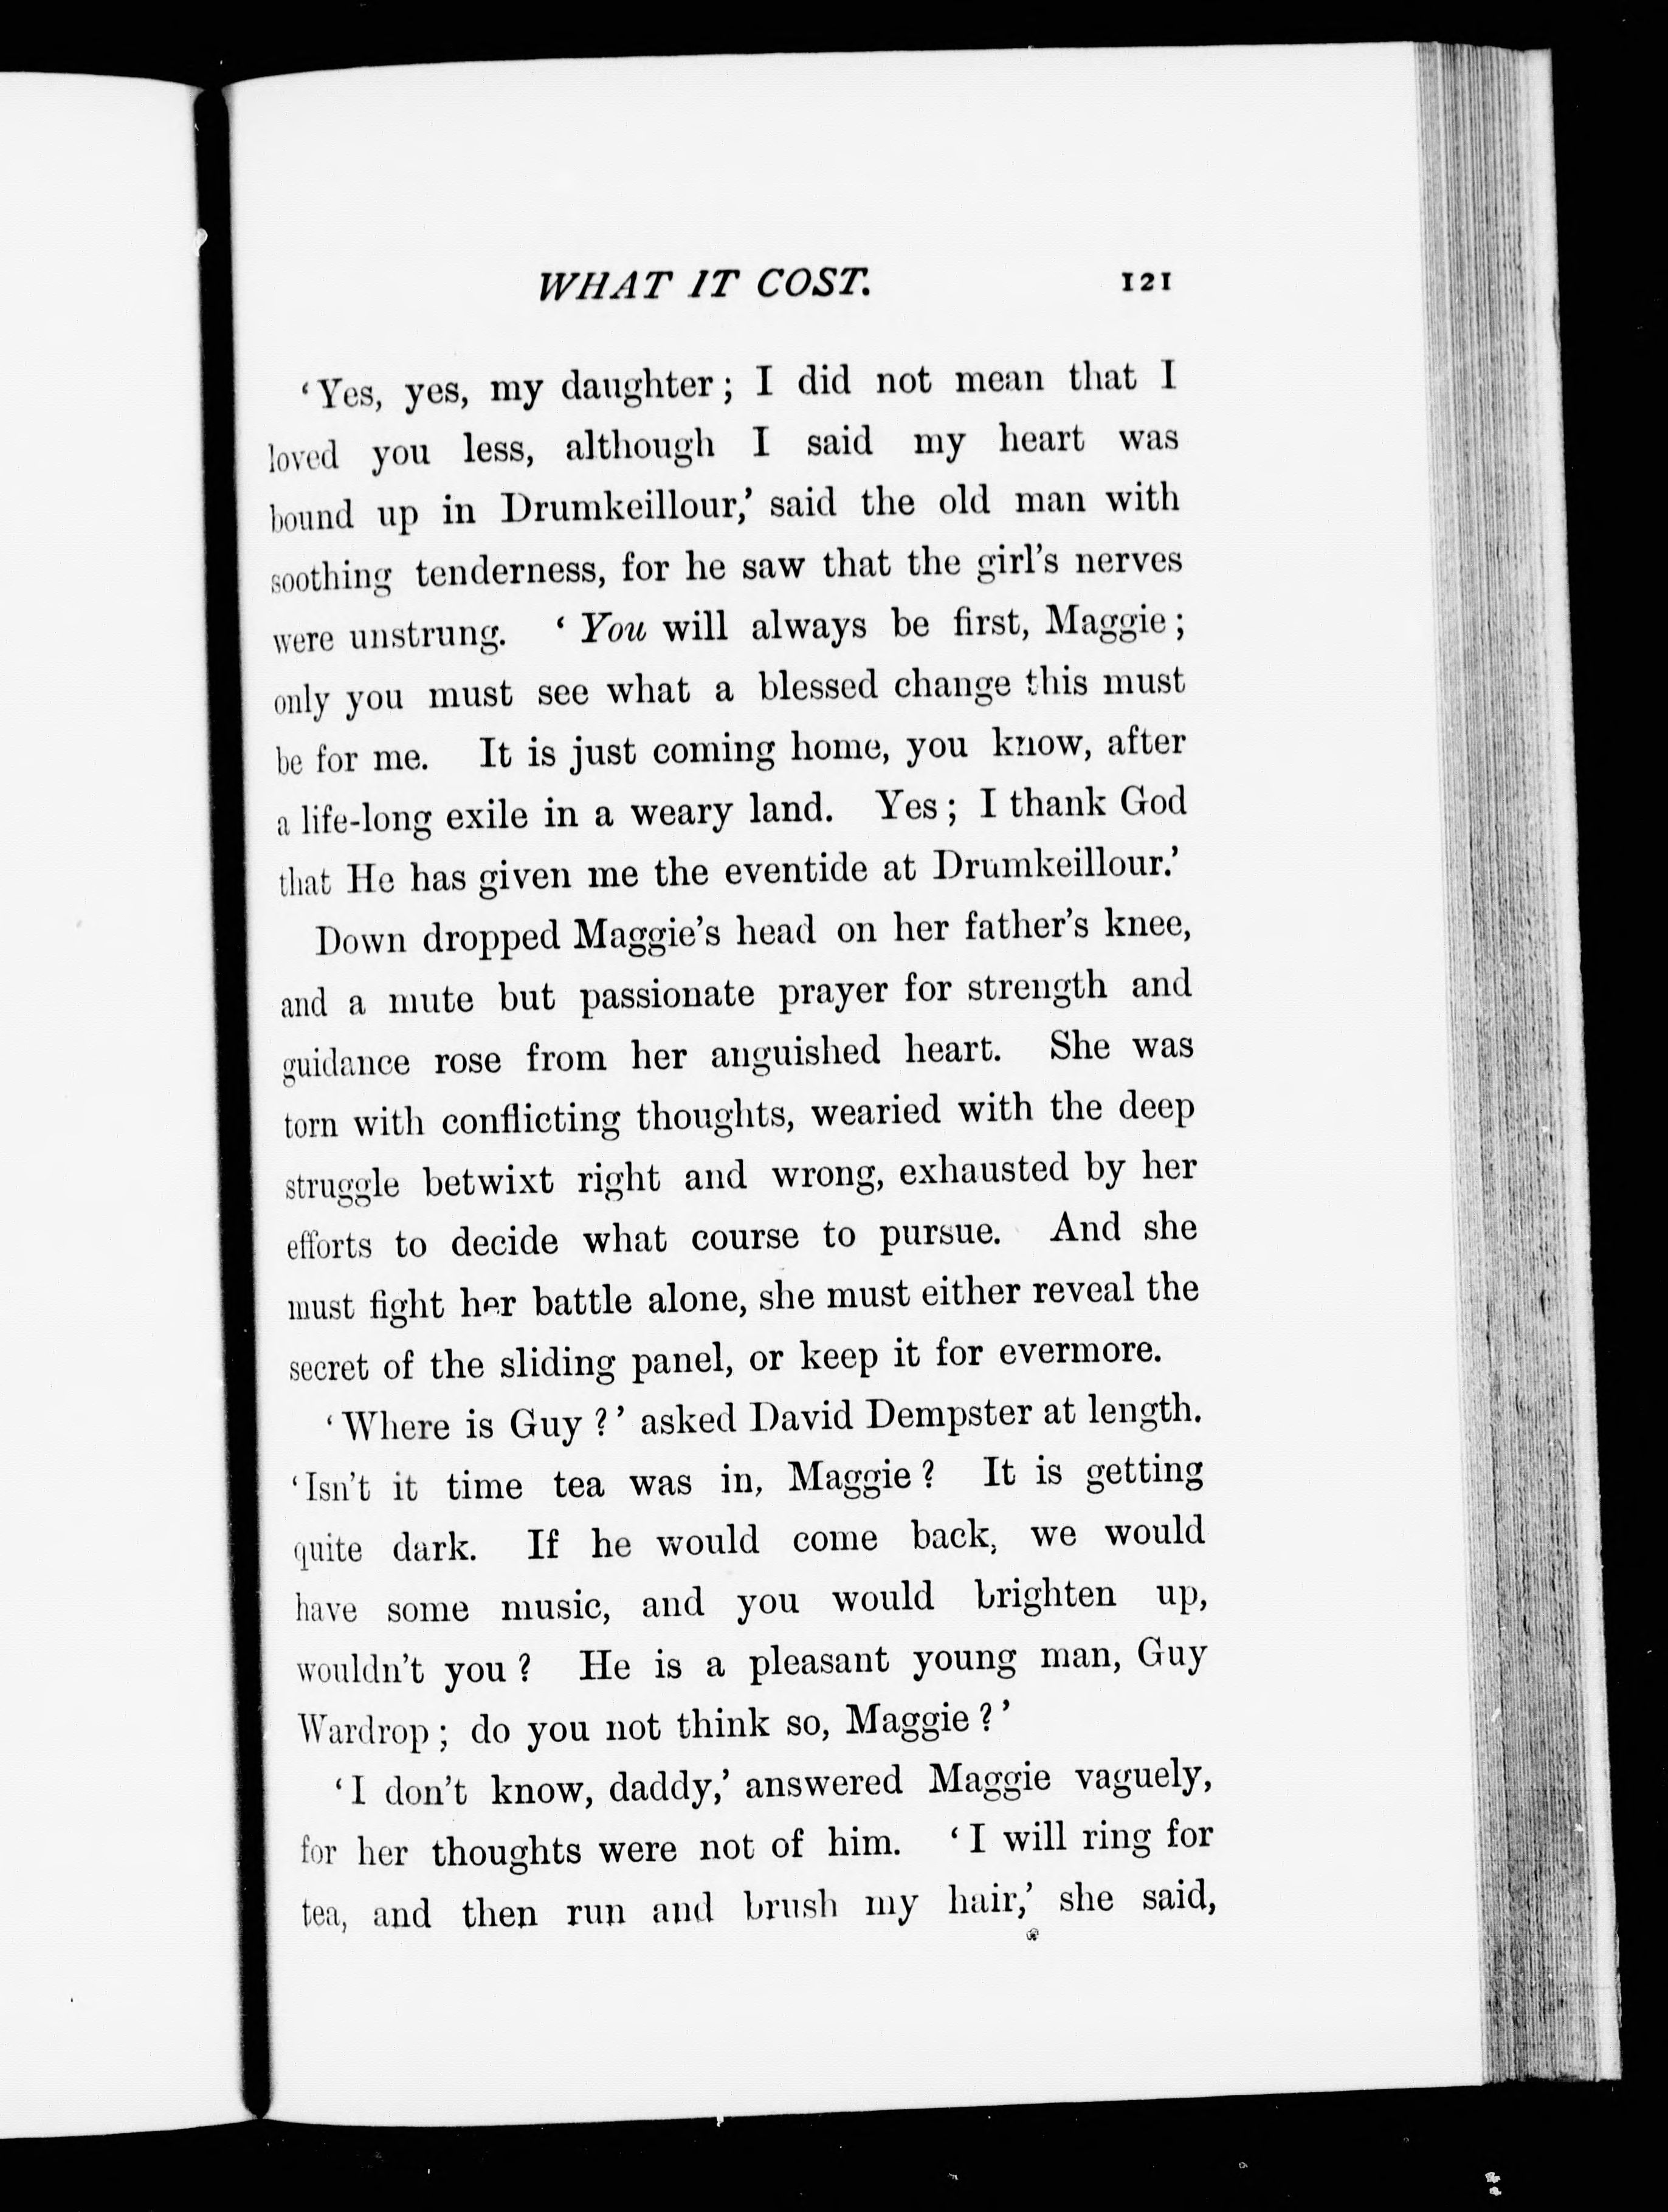 WHAT IT COST. 121
‘Yes, yes, my daughter; I did not mean that I
loved you less, although I said my heart was
bound up in Drumkeillour,’ said the old man with
soothing tenderness, for he saw that the girl’s nerves
were unstrung. ‘You will always be first, Maggie;
only you must see what a blessed change this must
be for me. It is just coming home, you know, after
a life-long exile in a weary land. Yes; I thank God
that He has given me the eventide at Drumkeillour.’
Down dropped Maggie’s head on her father’s knee,
and a mute but passionate prayer for strength and
guidance rose from her anguished heart. She was
torn with conflicting thoughts, wearied with the deep
struggle betwixt right and wrong, exhausted by her
efforts to decide what course to pursue. And she
must fight her battle alone, she must either reveal the
secret of the sliding panel, or keep it for evermore.
‘Where is Guy?’ asked David Dempster at length.
‘Isn’t it time tea was in, Maggie? It is getting
quite dark. If he would come back, we would
have some music, and you would brighten up,
wouldn’t you? He is a pleasant young man, Guy
Wardrop; do you not think so, Maggie?’
‘I don’t know, daddy,’ answered Maggie vaguely,
for her thoughts were not of him. ‘I will ring for
tea, and then run and brush my hair,’ she said,